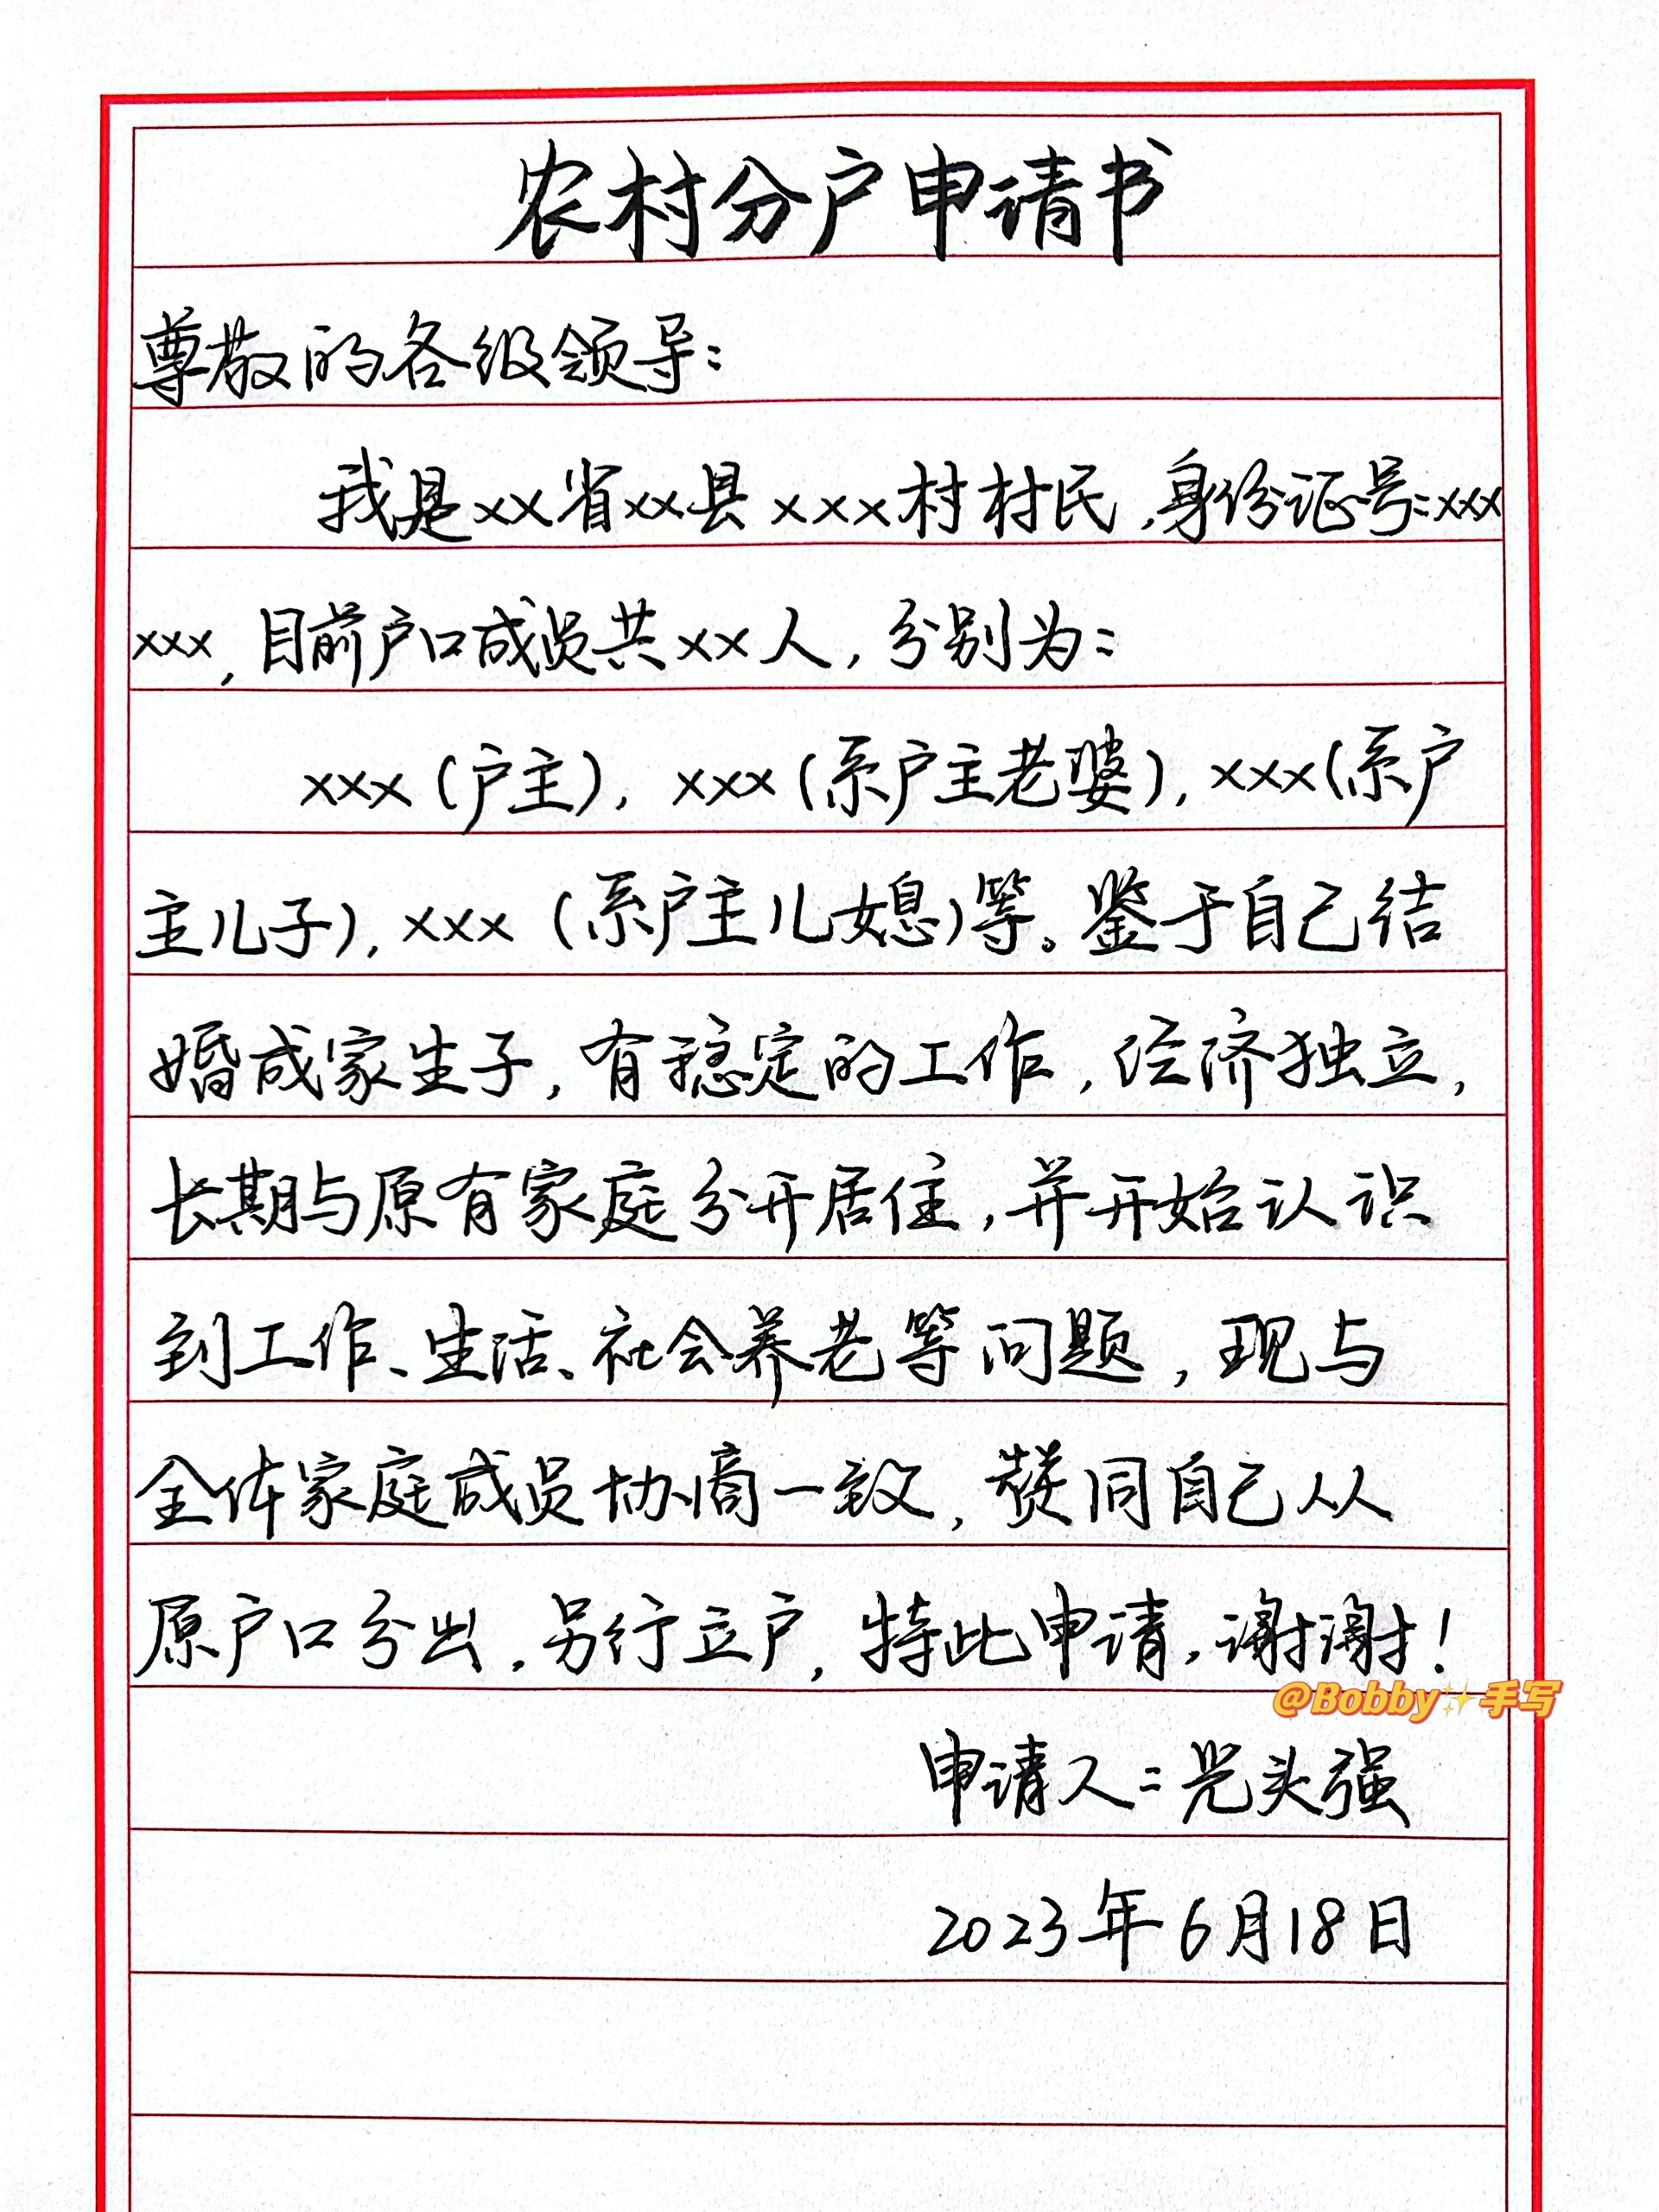 农村分户申请书
尊敬的各级领导:
我是xx省xx县xxx村村民,身份证号:xxx
xxx,目前户口成员共xx人,分别为:
xxx(户主),xxx(系户主老婆),xxx(系户
主儿子),xxx(系户主儿媳)等。鉴于自己结
婚成家生子,有稳定的工作,经济独立,
长期与原有家庭分开居住,并开始认识
到工作、生活、社会养老等问题,现与
全体家庭成员协商一致,赞同自己从
原户口分出,另行立户,特此申请,谢谢!
@Bobby✨手写
申请人:光头强
2023年6月18日